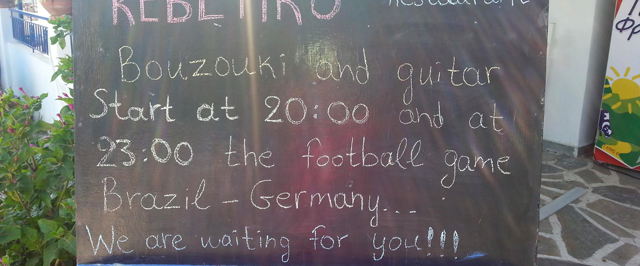 REBETIKO Restaurant
Bouzouki and guitar
Start at 20:00 and at
23:00 the football game
Brazil - Germany...
We are waiting for you!!!